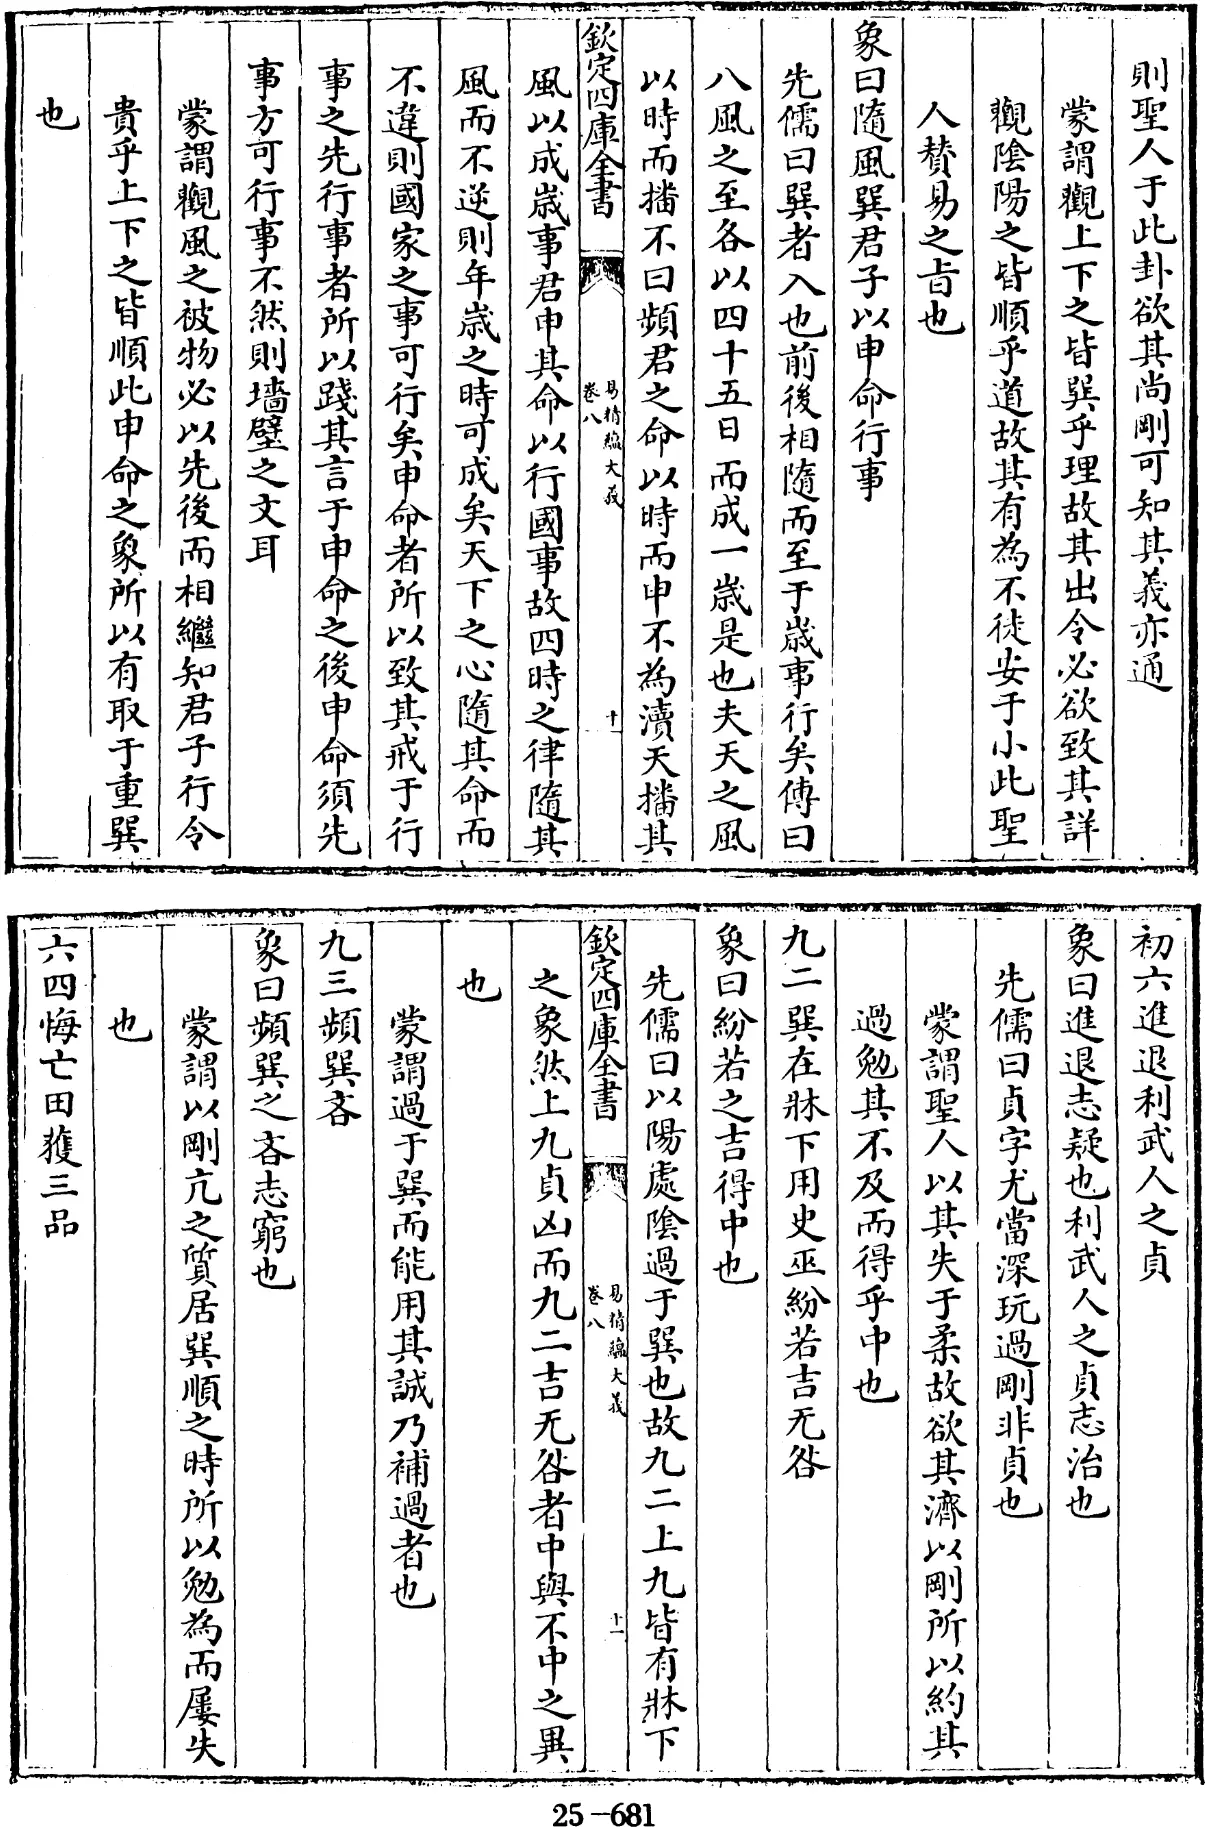 則聖人于此卦欲其尚剛可知其義亦通
蒙謂觀上下之皆巽乎理故其出令必欲致其詳
觀陰陽之皆順乎道故其有為不徒安于小此聖
人賛易之旨也
象曰隨風巽君子以申命行事
先儒曰巽者入也前後相隨而至于嵗事行矣傳曰
八風之至各以四十五日而成一嵗是也夫天之風
以時而播不曰頻君之命以時而申不為瀆天播其
欽定四庫全書
易精蘊大義
卷八
十一
風以成嵗事君申其命以行國事故四時之律隨其
風而不逆則年嵗之時可成矣天下之心隨其命而
不違則國家之事可行矣申命者所以致其戒于行
事之先行事者所以踐其言于申命之後申命須先
事方可行事不然則墻壁之文耳
蒙謂觀風之被物必以先後而相繼知君子行令
貴乎上下之皆順此申命之象所以有取于重巽
也
初六進退利武人之貞
象曰進退志疑也利武人之貞志治也
先儒曰貞字尤當深玩過剛非貞也
蒙謂聖人以其失于柔故欲其濟以剛所以約其
過勉其不及而得乎中也
九二巽在牀下用史巫紛若吉无咎
象曰紛若之吉得中也
先儒曰以陽處陰過于巽也故九二上九皆有牀下
欽定四庫全書
易精蘊大義
卷八
十二
之象然上九貞凶而九二吉无咎者中與不中之異
也
蒙謂過于巽而能用其誠乃補過者也
九三頻巽吝
象曰頻巽之吝志窮也
蒙謂以剛亢之質居巽順之時所以勉為而屢失
也
六四悔亡田獲三品
25-681